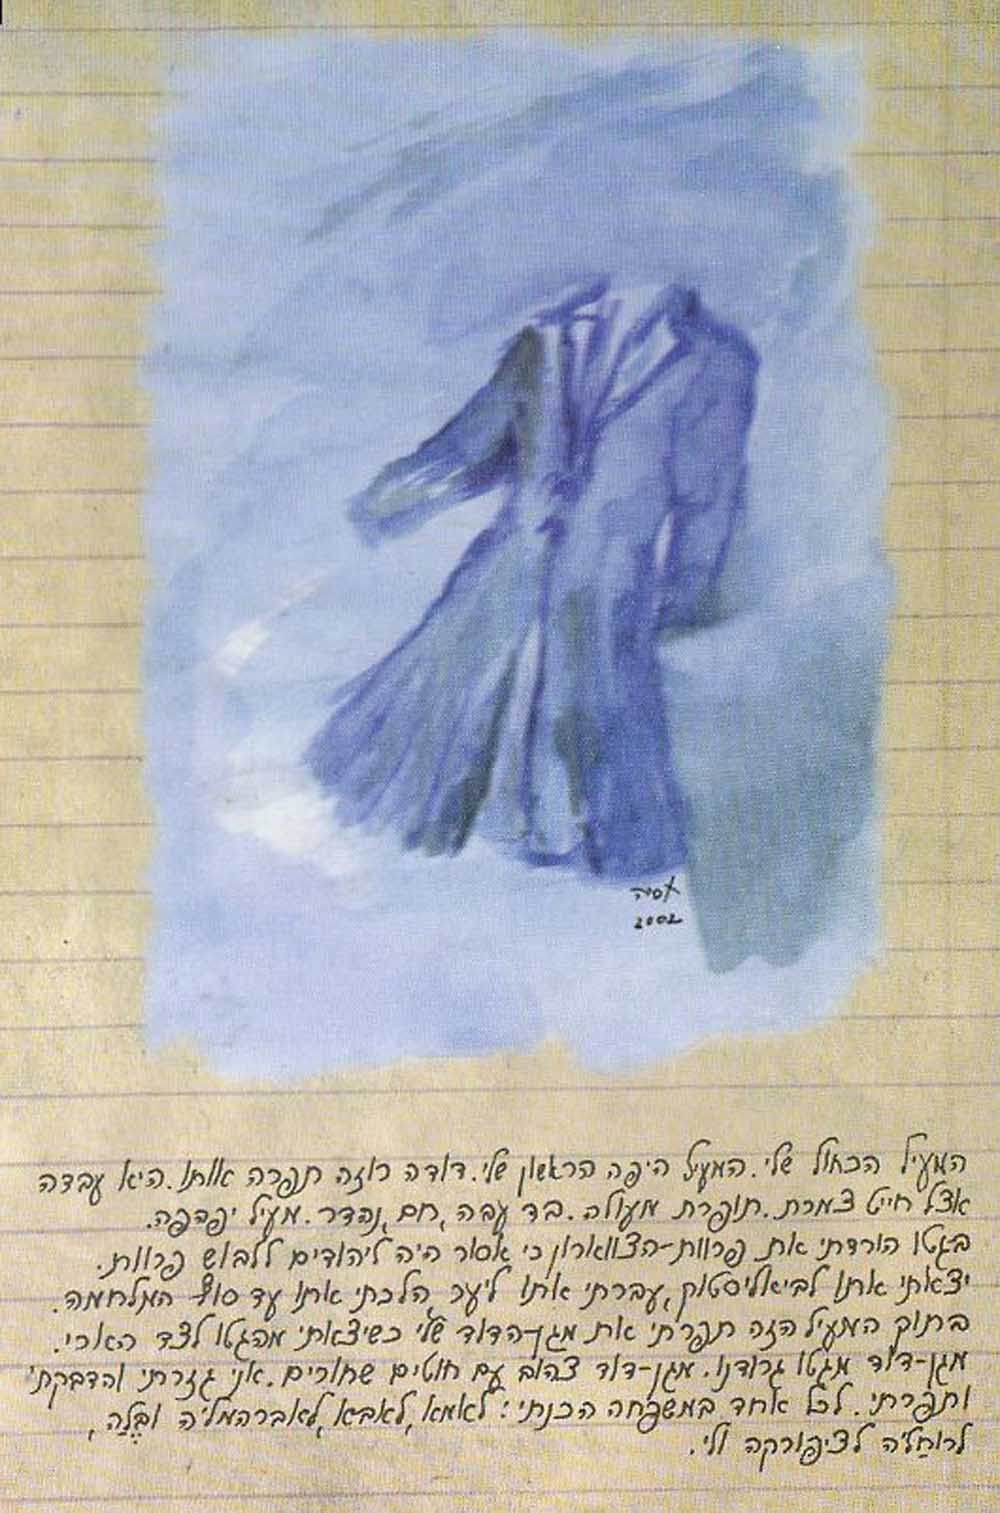 אסיה
2002
המעיל הכחול שלי. המעיל היפה הראשון שלי. דודה רוזה תפרה אותו. היא עבדה
אצל חייט צמרת. תופרת מעולה. בד עבה, חם, נהדר. מעיל יפהפה.
בגטו הורדתי את פרוות-הצווארון כי אסור היה ליהודים ללבוש פרוות.
יצאתי אתו לביאליסטוק, עברתי אתו ליער, הלכתי אתו עד סוף המלחמה.
בתוך המעיל הזה תפרתי את מגן-הדוד שלי כשיצאתי מהגטו לצד הארי.
מגן-דוד מגטו גרודנו. מגן-דוד צהוב עם חוטים שחורים. אני גזרתי והדבקתי
ותפרתי. לכל אחד במשפחה הכנתי: לאמא, לאבא, לאברהמל'ה ובֶלַה,
לרוחַל'ה לציפורקה ולי.